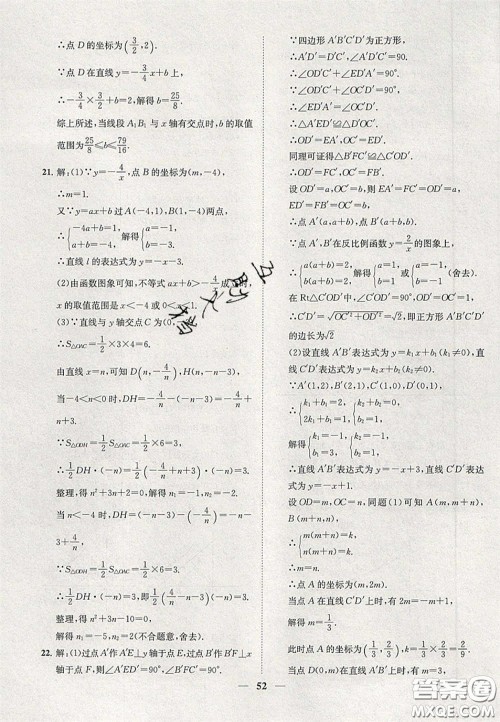 ∴点 D 的坐标为(3/2,2).
∵点 D 在直线 y=-3/4x+b 上,
∴-3/4×3/2+b=2,解得 b=25/8.
综上所述,当线段 A₁B₁ 与 x 轴有交点时,b 的取值
范围为25/8≤b≤79/16.
21. 解:(1)∵y=-4/x,点 B 的坐标为(m,-4),
∴m=1.
又∵y=ax+b 过A(-4,1),B(1,-4)两点,
∴{-4a+b=1, a+b=-4. 解得{a=-1, b=-3.
∴直线 l 的表达式为 y=-x-3.
(2)由函数图象可知,不等式 ax+b>-4/x成立时,
x 的取值范围是 x<-4 或 0<x<1.
(3)∵直线与 y 轴交点 C 为(0,
∴S△OAC=1/2×3×4=6.
由直线 x=n,可知 D(n,-4/n),
当-4<n<0 时,DH=-4/n-(-n-3)=-4/n+
n+3.
∵S△ODH=1/2S△OAC=1/2×6=3,
∴1/2DH·(-n)=1/2(-4/n+n+3)·(-n)=3.
整理,得 n²+3n+2=0.解得 n₁=-1,n₂=-2.
当 n<-4 时,DH=(-n-3)-(-4/n)=-n-
3+4/n.
∵S△ODH=1/2S△OAC=1/2×6=3,
∴1/2DH·(-n)=3,即1/2(-n-3+4/n)·(-n)=3.
整理,得 n²+3n-10=0.
解得 n₁=-5,n₂=2(不合题意,舍去).
22. 解:(1)过点 A′作 A′E⊥y 轴于点 E,过点 B′作 B′F⊥x
轴于点 F,则∠A′ED′=90°,∠B′FC′=90°.
∵四边形 A′B′C′D′为正方形,
∴A′D′=D′C′,∠A′D′C′=90°.
∴∠OD′C′+∠ED′A′=90°.
∵∠OD′C′+∠OC′D′=90°,
∴∠ED′A′=∠OC′D′.
∴△A′ED′≌△D′OC′.
∴OD′=EA′,OC′=ED′.
同理可证得△B′FC′≌△C′OD′.
设 OD′=a,OC′=b,则 EA′=FC′=OD′=a,
ED′=FB′=OC′=b.
∴点 A′(a,a+b),点 B′(a+b,b).
∵点 A′、B′在反比例函数 y=2/x的图象上,
∴{a(a+b)=2, b(a+b)=2. 解得{a=1, b=1 或{a=-1, b=-1.(舍去).
在 Rt△C′OD′中,∠C′OD′=90°,
∴C′D′=√OC′²+OD′²=√2,即正方形 A′B′C′D′
的边长为√2
(2)设直线 A′B′表达式为 y=k₁x+b₁(k₁≠0),直
线 C′D′表达式为 y=k₂x+b₂(k₂≠0).
∵A′(1,2),B′(2,1),C′(1,0),D′(0,1),
∴{k₁+b₁=2, 2k₁+b₁=1, {k₂+b₂=0, b₂=1.
解得{k₁=-1, b₁=3, {k₂=-1, b₂=1.
∴直线 A′B′表达式为 y=-x+3,直线 C′D′表达
式为 y=-x+1.
设 OD=m,OC=n,同题(1)可知 A(m,m+n),
B(m+n,n).
∴{m(m+n)=k, n(m+n)=k.
∴m=n.
∴点 A 的坐标为(m,2m).
当点 A 在直线 C′D′上时,有 2m=-m+1,
解得 m=1/3,
此时点 A 的坐标为(1/3,2/3),k=1/3×2/3=2/9.
当点 D(0,m)在直线 A′B′上时,有
52
答案圈
MXQE.COM